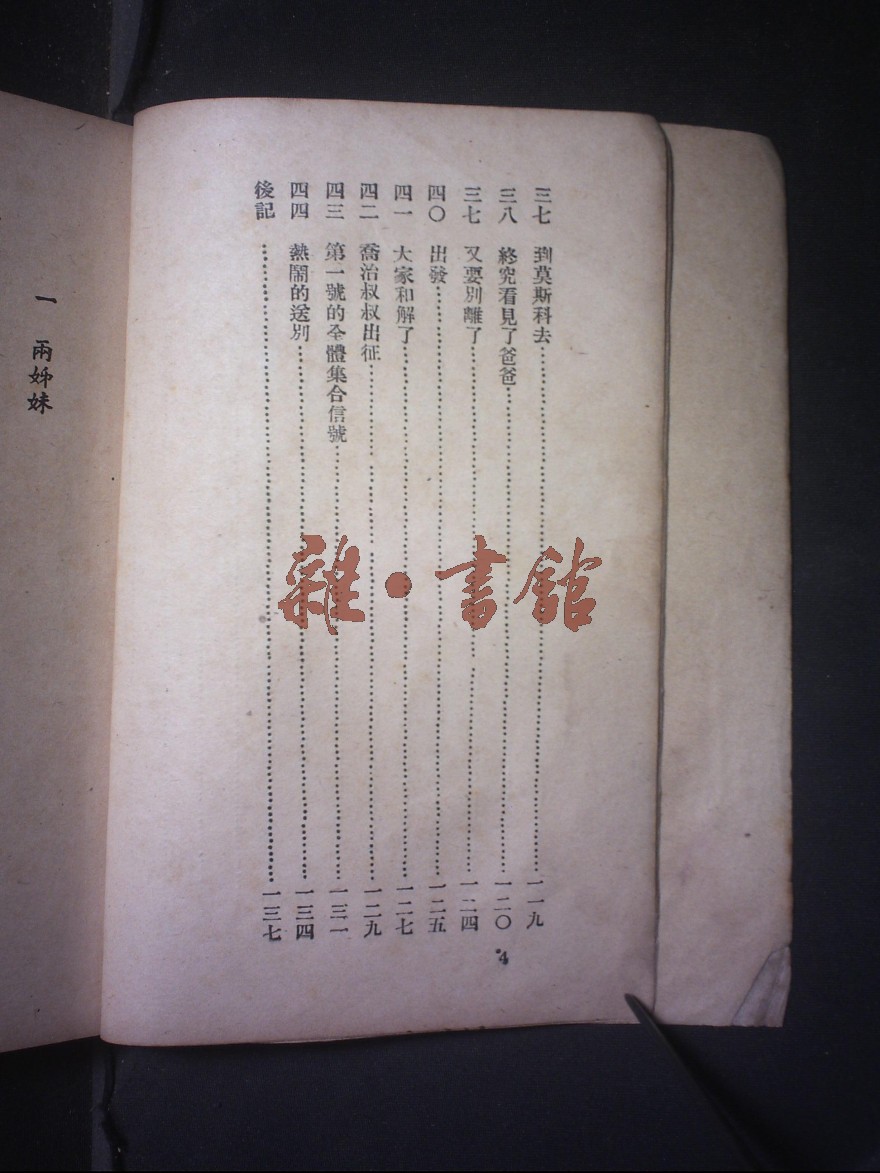 三七 到莫斯科去……一一九
三八 終究看見了爸爸……一二〇
三七 又要別離了……一二四
四〇 出發……一二五
四一 大家和解了……一二七
四二 喬治叔叔出征……一二九
四三 第一號的全體集合信號……一三一
四四 熱鬧的送別……一三四
後記……一三七
4
一 兩姊妹
雜·書館